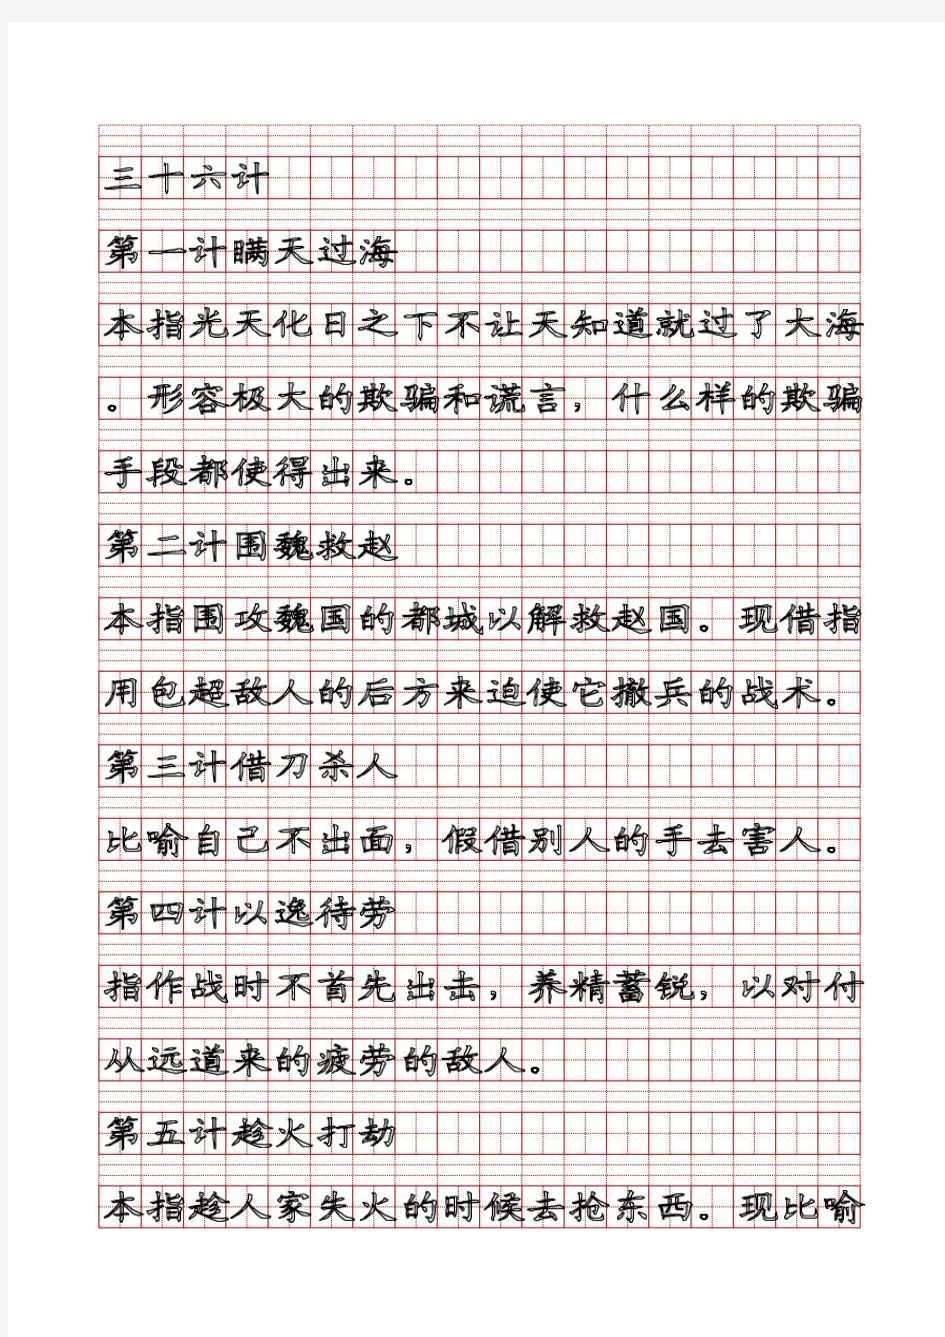 三十六计
第一计瞒天过海
本指光天化日之下不让天知道就过了大海
。形容极大的欺骗和谎言，什么样的欺骗
手段都使得出来。
第二计围魏救赵
本指围攻魏国的都城以解救赵国。现借指
用包超敌人的后方来迫使它撤兵的战术。
第三计借刀杀人
比喻自己不出面，假借别人的手去害人。
第四计以逸待劳
指作战时不首先出击，养精蓄锐，以对付
从远道来的疲劳的敌人。
第五计趁火打劫
本指趁人家失火的时候去抢东西。现比喻